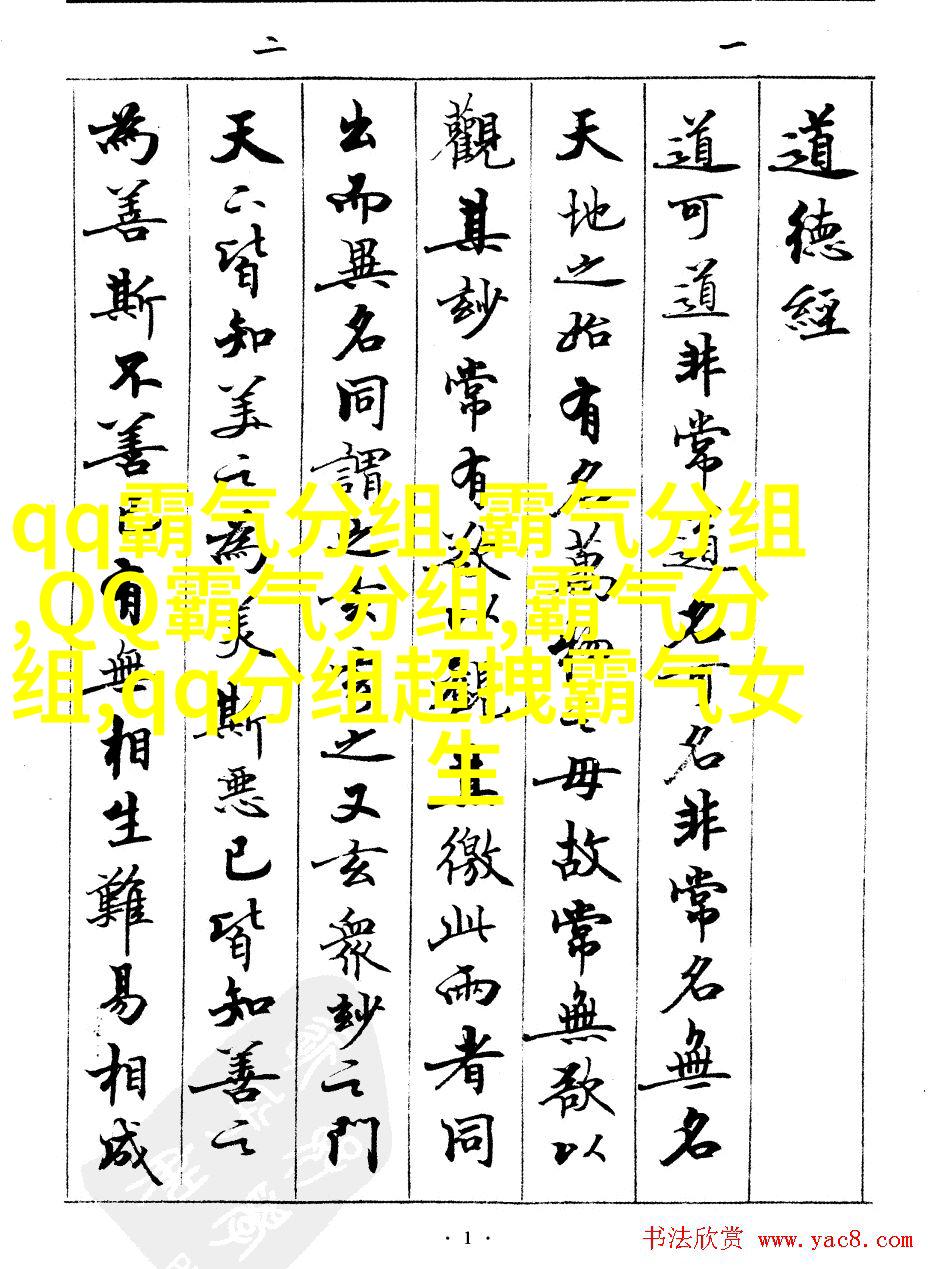 一
道德經
道可道非常道名可名非常名無名
天地之始有名萬物之母故常無欲以
觀其玅常有欲以觀其徼此兩者同
出而異名同謂之玄玄之又玄眾玅之門
二
天下皆知美之為美斯惡已皆知善之
為善斯不善已有無相生難易相成
qq霸气分组,霸气分组
,QQ霸气分组,霸气分
组,qq分组超拽霸气女
生
· 1 ·
书法欣赏 www.yac8.com